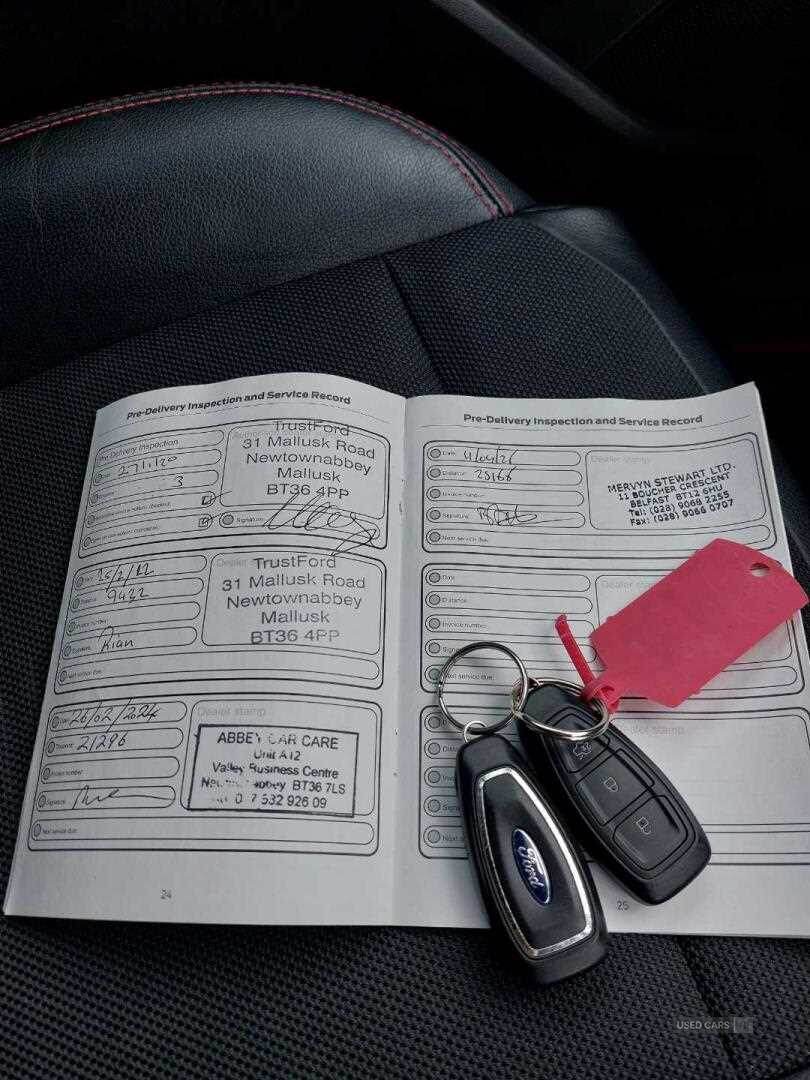 Pre-Delivery Inspection and Service Record
Pre Delivery Inspection
27/1/20
3
Signature
TrustFord
31 Mallusk Road
Newtownabbey
Mallusk
BT36 4PP
Date
9432
Invoice number
Rian
Next service due
Dealer
TrustFord
31 Mallusk Road
Newtownabbey
Mallusk
BT36 4PP
Date 26/02/2024
Distance 21296
Invoice number
Signature
Next service due
Dealer stamp
ABBEY CAR CARE
Unit A12
Valley Business Centre
BT36 7LS
24
Pre-Delivery Inspection and Service Record
Date
Distance 25166
Invoice number
Signature
Next service due
Dealer stamp
MERVYN STEWART LTD.
11 BOUCHER CRESCENT
BELFAST BT12 6HU
Tel: (028) 9068 2255
Fax: (028) 9066 0707
Date
Distance
Invoice number
Next service due
Dealer stamp
Dealer stamp
25
Ford
USED CARS NI